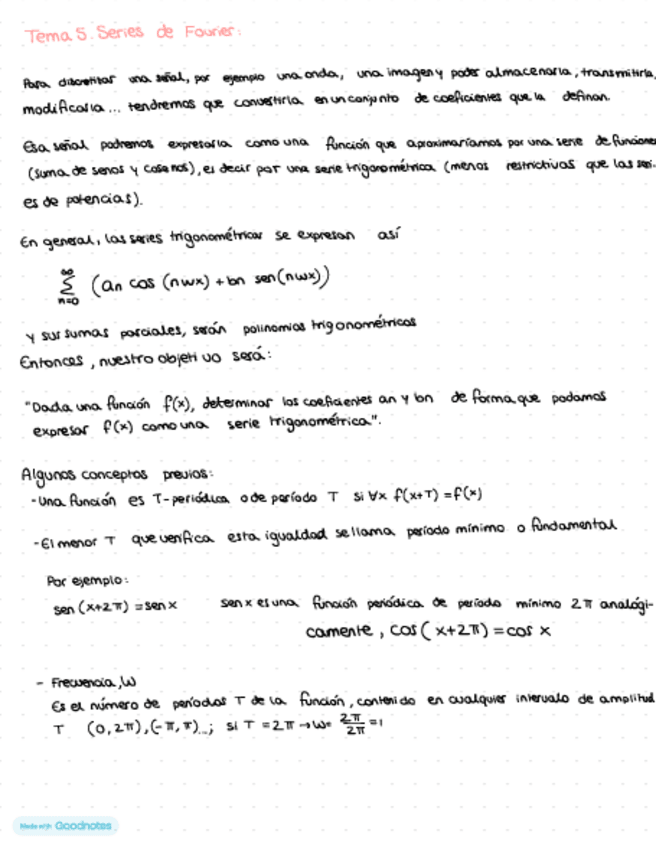 Tema 5. Series de Fourier:
Para discretitar una señal, por ejemplo una onda, una imagen y poder almacenarla, transmitirla,
modificarla... tendremos que convertirla en un conjunto de coeficientes que la definan.
Esa señal podremos expresarla como una función que aproximaríamos por una serie de funciones
(suma de senos y cosenos), es decir por una serie trigonométrica (menos restrictivas que las seri-
es de potencias).
En general, las series trigonométricas se expresan así
∞
∑ (an cos (nωx) + bn sen(nωx))
n=0
y sus sumas parciales, serán polinomios trigonométricos
Entonces, nuestro objetivo será:
"Dada una función f(x), determinar los coeficientes an y bn de forma que podamos
expresar f(x) como una serie trigonométrica".
Algunos conceptos previos:
- Una función es T-periódica o de período T si ∀x f(x+T) = f(x)
- El menor T que verifica esta igualdad se llama período mínimo o fundamental
Por ejemplo:
sen (x+2π) = sen x sen x es una función periódica de período mínimo 2π analógi-
camente, cos(x+2π) = cos x
- Frecuencia, ω
Es el número de períodos T de la función, contenido en cualquier intervalo de amplitud
T (0, 2π), (-π, π)...; si T = 2π → ω = 2π/2π = 1
Made with Goodnotes